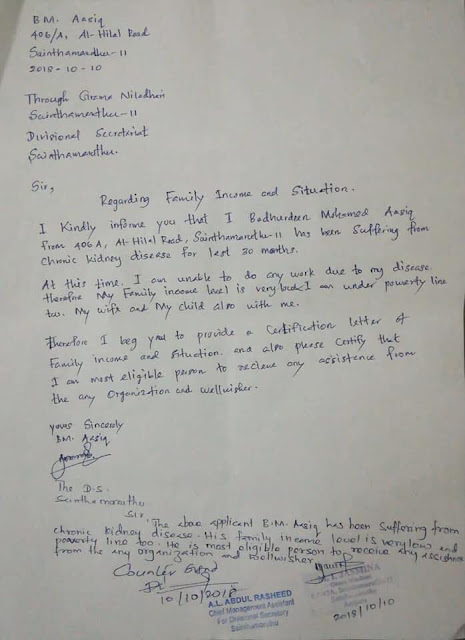 B.M. Aasiq
406/A, Al-Hilal Road
Sainthamaruthu-11
2018-10-10
Through Grama Niladhari
Sainthamaruthu-11
Divisional Secretariat
Sainthamaruthu.
Sir,
Regarding Family Income and Situation.
I Kindly informe you that I Badhurdeen Mohamed Aasiq
from 406A, Al-Hilal Road, Sainthamaruthu-11 has been Suffering from
chronic kidney disease for last 30 months.
At this time, I am unable to do any work due to my disease.
therefore My Family income level is very I am under powerty line
too. My wife and My child also with me.
Therefore I beg you to provide a Certification letter of
Family income and Situation. and also please Certify that
I am most eligible person to recieve any assistence from
the any Organization and wellwisher.
yours Sincerely
B.M. Aasiq
The D.S.
Sainthamaruthu
Sir,
The above applicant B.M. Asiq has been suffering from
chronic kidney disease. His family income level is very low and
poverty line too. He is most eligible person to receive any assistence
from the any organization and wellwisher
Counter Signed
10/10/2018
A.L. ABDUL RASHEED
Chief Management Assistant
For Divisional Secretary
Sainthamaruthu
2018/10/10